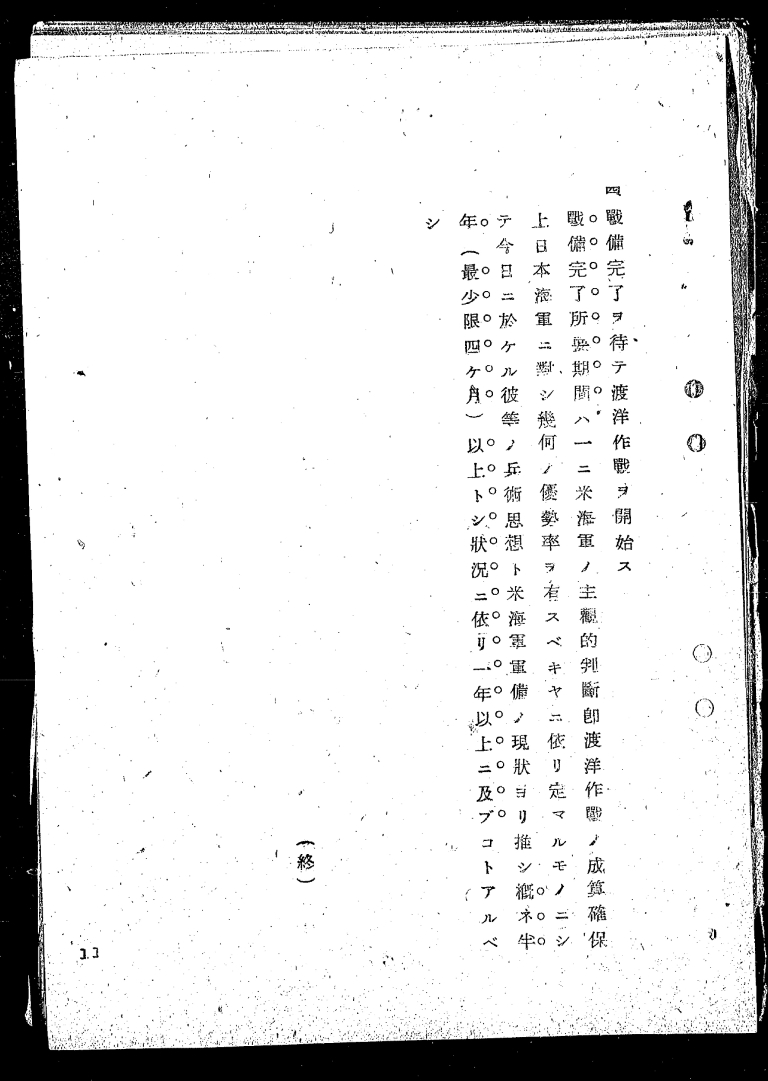 四 戰備完了ヲ待テ渡洋作戰ヲ開始ス
戰備完了所要期間ハ一ニ米海軍ノ主觀的判斷卽渡洋作戰ノ成算確保
上日本海軍ニ對シ幾何ノ優勢率ヲ有スベキヤニ依リ定マルモノニシ
テ今日ニ於ケル彼等ノ兵術思想ト米海軍軍備ノ現狀ヨリ推シ槪ネ半
年(最少限四ケ月)以上トシ狀況ニ依リ一年以上ニ及ブコトアルベ
シ
(終)
11